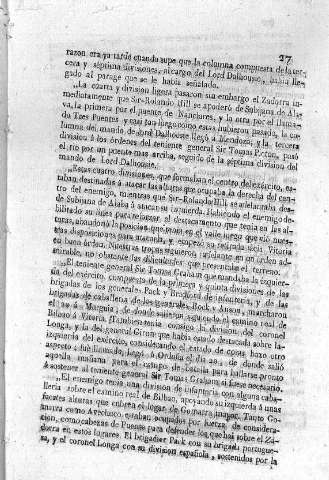 27
razon era ya tarde cuando supe que la columna compuesta de la ter-
cera y séptima divisiones, al cargo del Lord Dalhousie, habia lle-
gado al parage que se le habia señalado.
„La cuarta y division ligera pasaron sin embargo el Zadorra in-
mediatamente que Sir Rolando Hill se apoderó de Subijana de Ala-
va, la primera por el puente de Nanclares, y la otra por el llamado
Tres Puentes y casi tan luego como estas hubieron pasado, la co-
lumna del mando de Lord Dalhousie llegó á Mendoza; y la tercera
division á los órdenes del teniente general Sir Tomas Picton, pasó
el rio por un puente mas arriba, seguido de la séptima division del
mando de Lord Dalhousie.
„Estas cuatro divisiones, que formaban el centro del exército, es-
taban destinadas á atacar las alturas que ocupaba la derecha del cen-
tro del enemigo, mientras que Sir Rolando Hill se adelantaba des-
de Subijana de Alaba á atacar su izquierda. Habiendo el enemigo de-
bilitado su línea para reforzar el destacamento que tenia en las al-
turas, abandonó la posicion que tenia en el valle luego que vió nues-
tras disposiciones para atacarla, y empezó su retirada hácia Vitoria
en buen órden. Nuestras tropas siguieron adelante en un órden ad-
mirable, no obstante las dificultades que presentaba el terreno.
„El teniente general Sir Tomas Graham que mandaba la izquier-
da del exército, compuesto de la primera y quinta divisiones de las
brigadas de los generales Pack y Bradford de infantería, y de las
brigadas de caballería de los generales Bock y Anson, marcharon
el 20 á Marguia, de donde salieron siguiendo el camino real de
Bilbao á Vitoria. Tambien tenia consigo la division del coronel
Longa, y la del general Giron que habia estado destacada sobre la
izquierda del exército, considerando el estado de cosas baxo otro
aspecto habia llamado, llegó á Orduña el dia 20, de donde salió
aquella mañana para el campo de batalla para hallarse pronto
á sostener al teniente general Sir Tomas Graham, si fuese necesario.
„El enemigo tenia una division de infantería con alguna caba-
llería sobre el camino real de Bilbao, apoyando su izquierda á unas
fuertes alturas que cubren el lugar de Gamarra mayor. Tanto Ga-
marra como Avechuco, estaban ocupados por fuerza, de considera-
cion, como cabezas de Puente para defender los que hai sobre el Za-
dorra en estos lugares. El brigadier Pack con su brigada portugue-
sa, y el coronel Longa con su division española, sostenidos por la